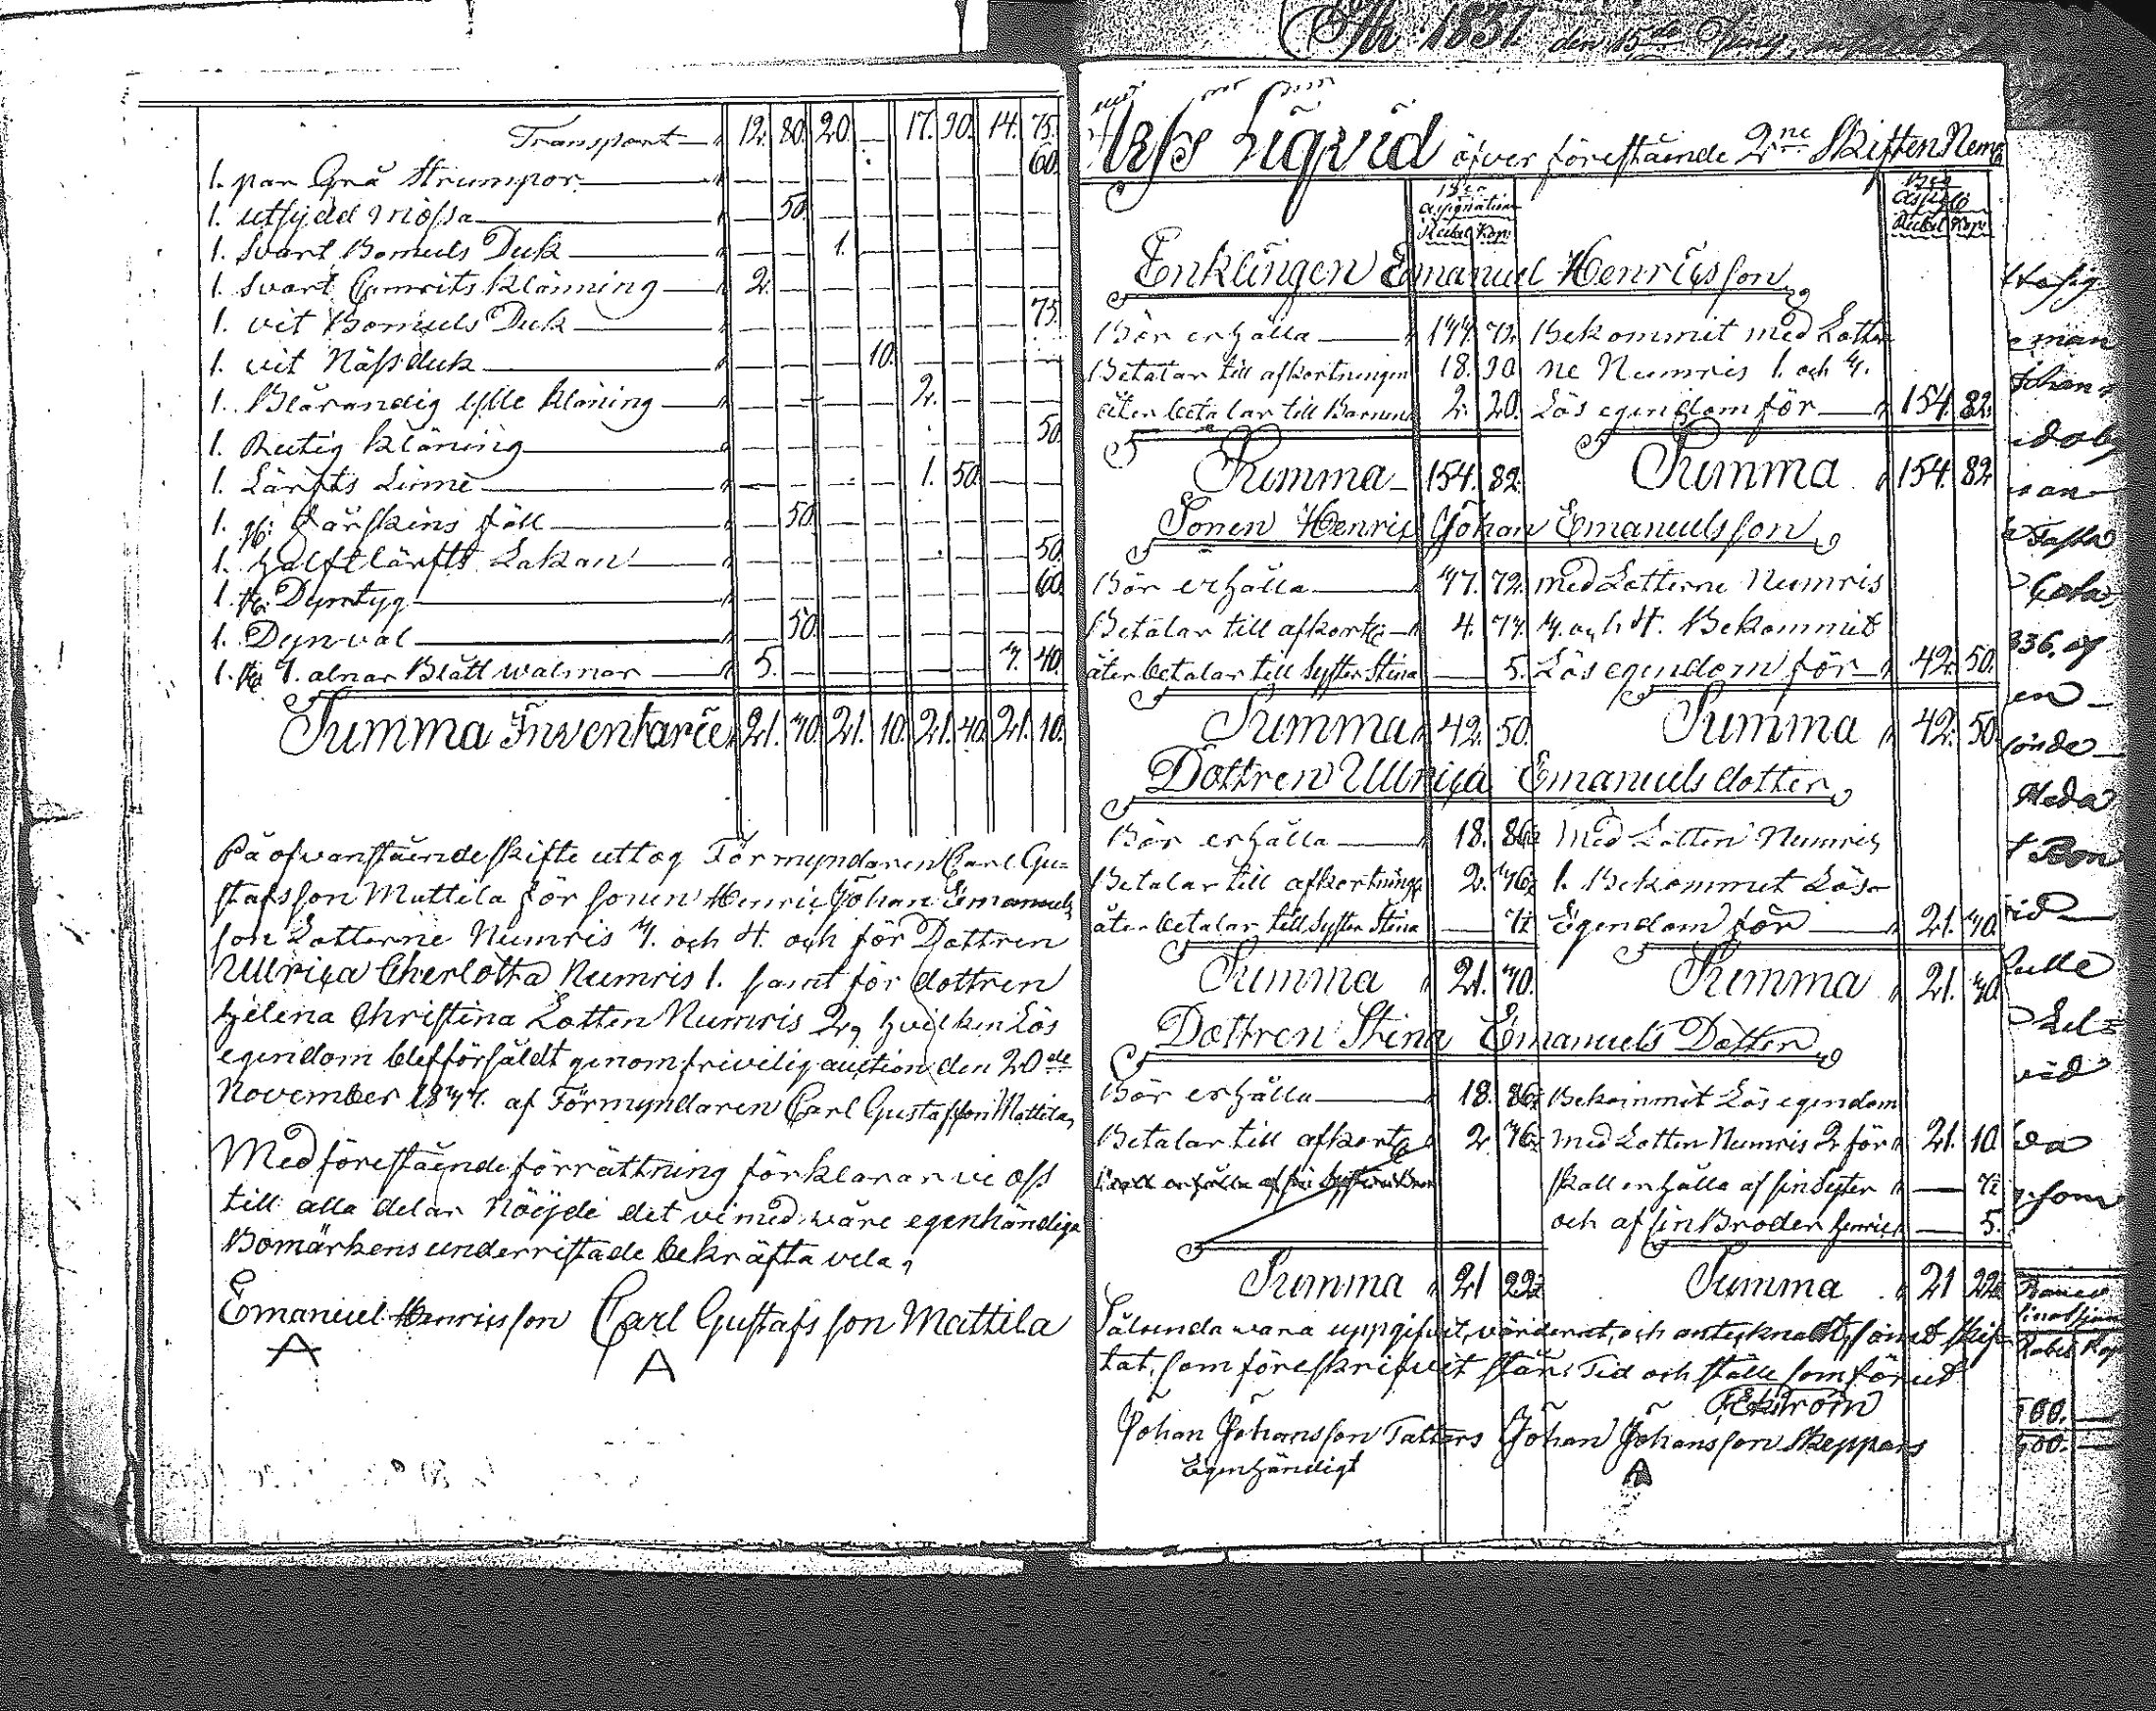 Transport 12. 80. 20. — 17. 90. 14. 75.
1. par Grå Strumpor — 60.
1. utsydd Mössa — 50.
1. Svart Bomuls Duk — 1.
1. Svart Camrits Klänning — 2.
1. vit Bomuls Duk — 75.
1. vit Näsduk — 10.
1. Blårandig ylle Kläning — 2.
1. Rutig Kläning — 50.
1. Lärfts Linne — 1. 50.
1. st: Fårskins fäll — 50.
1. halft lärfts Lakan — 50.
1. st: Dyntyg — 60.
1. Dynval — 50.
1. st: 4. alnar Blått walmar — 5. — 4. 40.
Summa Inventarie 21. 40. 21. 10. 21. 40. 21. 10.
På ofvanstående skifte uttog Förmyndaren Carl Gu-
stafsson Mattila för sonen Henric Johan Emanuels
son Lotterne Numris 4. och och för Dottren
Ulrica Cherlotta Numris 1. samt för dottren
Helena Christina Lotten Numris 2, hvilken Lös
egendom blef försåldt genom frivilig auction den 20de
November 1844. af Förmyndaren Carl Gustafsson Mattila,
Med förestående förrättning förklarar vi oss
till alla delar Nöijde det vi med wåre egenhändiga
Bomärkens underristade bekräfta vela,
Emanuel Henricsson Carl Gustafsson Mattila
År 1837 den 15de
Liqvid öfver förestående 2ne Skiften Nem:
assignation
Rubel Kop:
Rubel Kop:
Enklingen Emanuel Henricsson
Bör erhålla — 144. 72. Bekommit med Lotter
Betalar till afkortningen 18. 90 ne Numris 1. och 4.
åter betalar till Barnen 2. 20. Lös egendom för — 154. 82.
Summa 154. 82. Summa 154. 82
Sonen Henric Johan Emanuelsson
Bör erhålla — 47. 72. med Lotterne Numris
Betalar till afkort: — 4. 74. 4. och Bekommit
åter betalar till Syster Stina — 5. Lös egendom för — 42. 50.
Summa 42. 50. Summa 42. 50.
Dottren Ulrica Emanuelsdotter
Bör erhålla — 18. 86 Med Lotten Numris
Betalar till afkortning 2. 46 1. Bekommit Lös-
åter betalar till Syster Stina — Egendom för — 21. 40.
Summa 21. 40. Summa 21. 40.
Dottren Stina Emanuels Dotter
Bör erhålla — 18. 86 Bekommit Lös egendom
Betalar till afkort: 2. 46 med Lotten Numris 2 för 21. 10.
skall erhålla af sin Syster —
och af sin Broder Henric — 5.
Summa 21 22 Summa 21 22
Sålunda wara uppgifvit, värderat, och antecknadt, samt skif-
tat, som föreskrifvit står. Tid och ställe som förut
Ekström
Johan Johansson Tatters Johan Johansson Skeppars
Egenhändigt